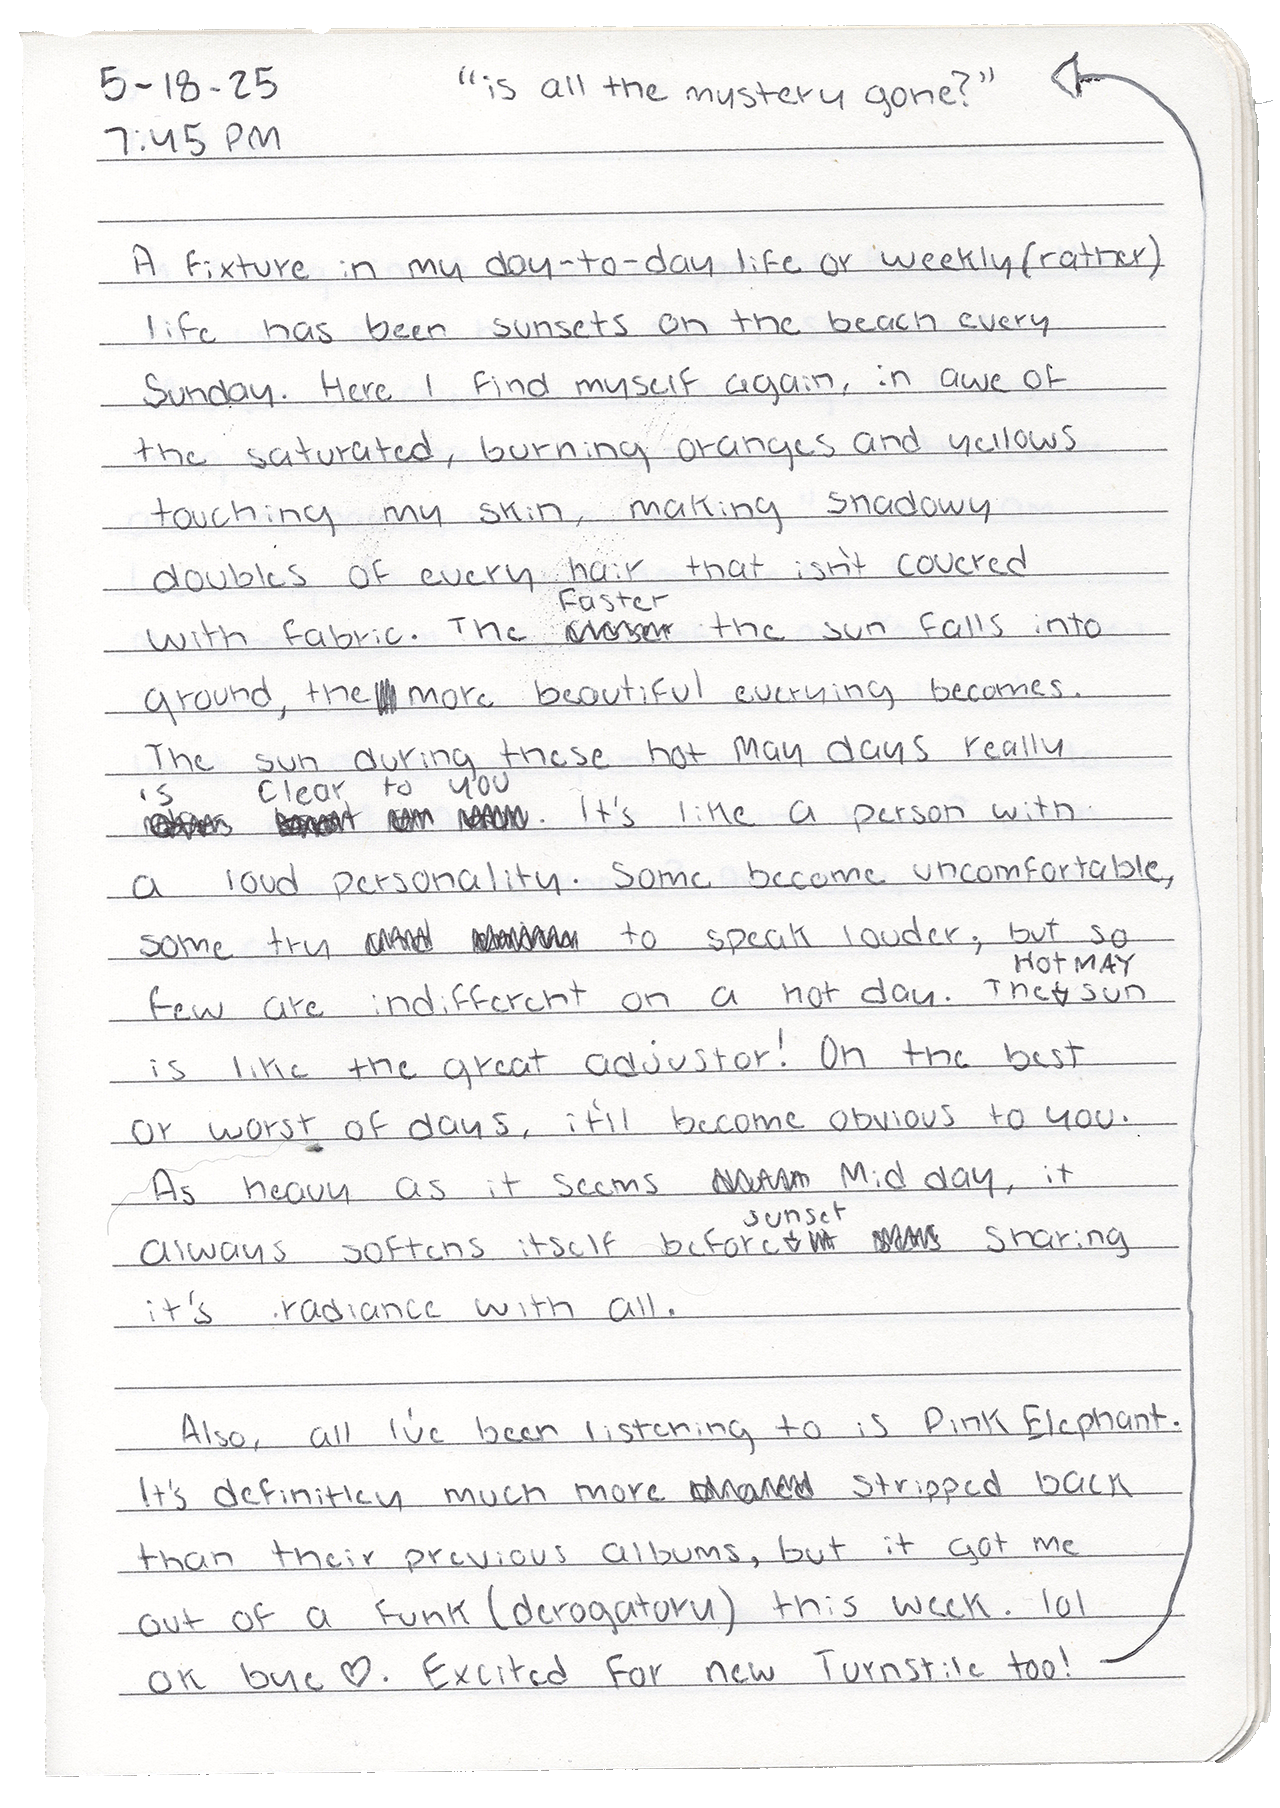 5-18-25 "is all the mystery gone?"
7:45 PM
A fixture in my day-to-day life or weekly (rather)
life has been sunsets on the beach every
Sunday. Here I find myself again, in awe of
the saturated, burning oranges and yellows
touching my skin, making shadowy
doubles of every hair that isn't covered
Faster
with fabric. The closer the sun falls into
ground, the more beautiful everying becomes.
The sun during these hot May days really
is clear to you
. It's like a person with
a loud personality. Some become uncomfortable,
some try to speak louder, but so
HOT MAY
few are indifferent on a hot day. The sun
is like the great adjustor! On the best
or worst of days, it'll become obvious to you.
As heavy as it seems Mid day, it
sunset
always softens itself before sharing
it's radiance with all.
Also, all I've been listening to is Pink Elephant.
It's definitley much more stripped back
than their previous albums, but it got me
out of a funk (derogatory) this week. lol
ok bye ♡. Excited for new Turnstile too!